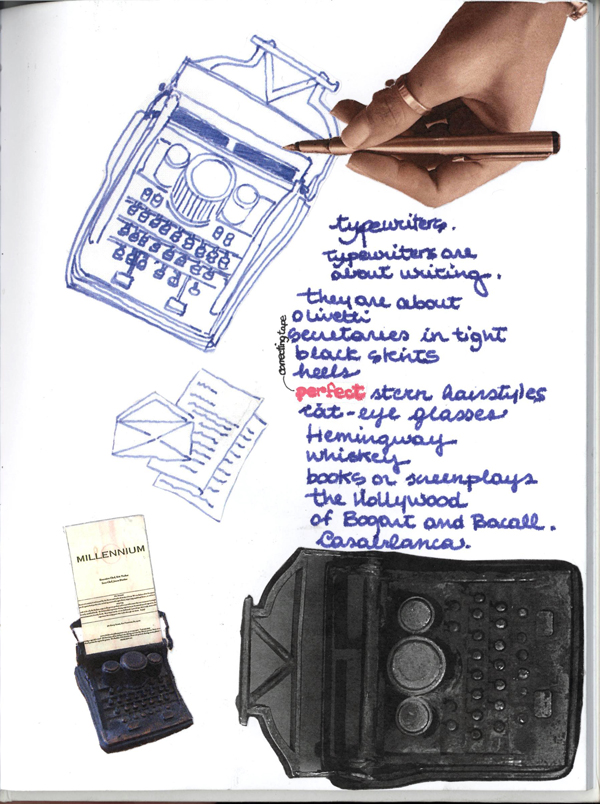 typewriters.
typewriters are
about writing.
they are about
olivetti
secretaries in tight
black skirts
heels
correcting tape
perfect stern hairstyles
cat-eye glasses
Hemingway
whiskey
books or screenplays
the Hollywood
of Bogart and Bacall.
Casablanca.
MILLENNIUM